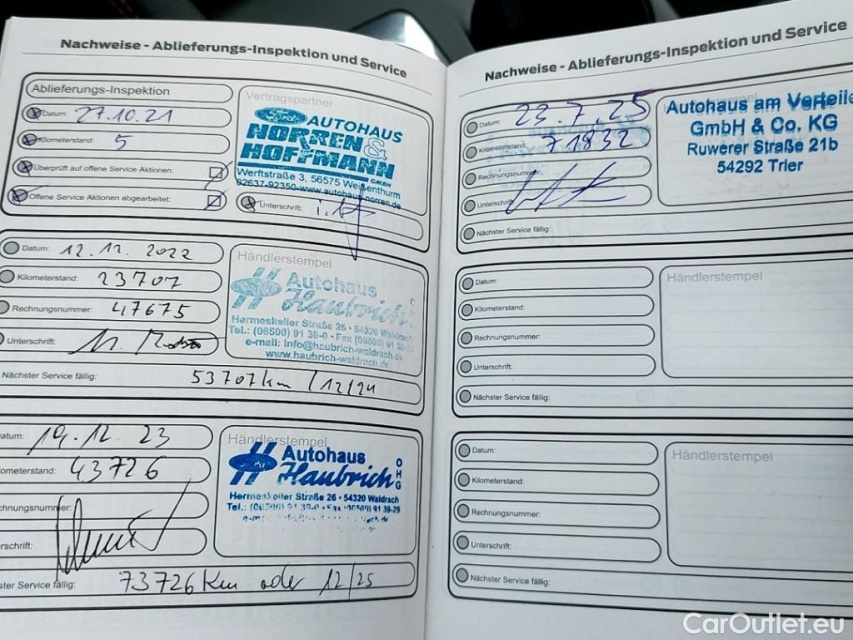 Nachweise - Ablieferungs-Inspektion und Service
Ablieferungs-Inspektion
Datum: 27.10.21
Kilometerstand: 5
Überprüft auf offene Service Aktionen:
Offene Service Aktionen abgearbeitet:
Vertragspartner
Ford
AUTOHAUS
NORREN &
HOFFMANN
GMBH
Werftstraße 3, 56575 Weißenthurm
02637-92350-www.autohaus-norren.de
Unterschrift:
Datum: 12.12.2022
Kilometerstand: 23707
Rechnungsnummer: 47675
Unterschrift:
Nächster Service fällig: 53707km / 12/24
Händlerstempel
Autohaus
Haubrich
Hermeskeiler Straße 26 · 54320 Waldrach
Tel.: (06500) 91 39-0 · Fax (06500) 91
e-mail: info@haubrich-waldrach.de
www.haubrich-waldrach.de
atum: 19.12.23
ometerstand: 43726
chnungsnummer:
erschrift:
ster Service fällig: 73726 Km oder 12/25
Händlerstempel
Autohaus
Haubrich
OHG
Hermeskeiler Straße 26 · 54320 Waldrach
Tel.: (06500) 91 39-0 · Fax (06500) 91 39-29
Nachweise - Ablieferungs-Inspektion und Service
Datum: 23.7.25
Kilometerstand: 71832
Rechnungsnummer:
Unterschrift:
Nächster Service fällig:
Autohaus am Verteile
GmbH & Co. KG
Ruwerer Straße 21b
54292 Trier
Datum:
Kilometerstand:
Rechnungsnummer:
Unterschrift:
Nächster Service fällig:
Händlerstempel
Datum:
Kilometerstand:
Rechnungsnummer:
Unterschrift:
Nächster Service fällig:
Händlerstempel
CarOutlet.eu